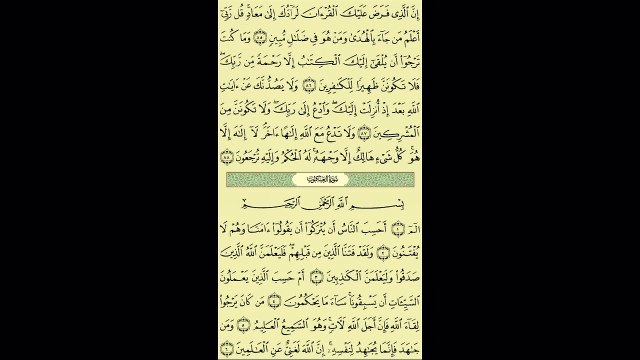 إِنَّ ٱلَّذِى فَرَضَ عَلَيْكَ ٱلْقُرْءَانَ لَرَآدُّكَ إِلَىٰ مَعَادٍۢ ۚ قُل رَّبِّىٓ
أَعْلَمُ مَن جَآءَ بِٱلْهُدَىٰ وَمَنْ هُوَ فِى ضَلَٰلٍۢ مُّبِينٍۢ ٨٥ وَمَا كُنتَ
تَرْجُوٓا۟ أَن يُلْقَىٰٓ إِلَيْكَ ٱلْكِتَٰبُ إِلَّا رَحْمَةًۭ مِّن رَّبِّكَ ۖ
فَلَا تَكُونَنَّ ظَهِيرًۭا لِّلْكَٰفِرِينَ ٨٦ وَلَا يَصُدُّنَّكَ عَنْ ءَايَٰتِ
ٱللَّهِ بَعْدَ إِذْ أُنزِلَتْ إِلَيْكَ ۖ وَٱدْعُ إِلَىٰ رَبِّكَ ۖ وَلَا تَكُونَنَّ مِنَ
ٱلْمُشْرِكِينَ ٨٧ وَلَا تَدْعُ مَعَ ٱللَّهِ إِلَٰهًا ءَاخَرَ ۘ لَآ إِلَٰهَ إِلَّا
هُوَ ۚ كُلُّ شَىْءٍ هَالِكٌ إِلَّا وَجْهَهُۥ ۚ لَهُ ٱلْحُكْمُ وَإِلَيْهِ تُرْجَعُونَ ٨٨
سُورَةُ العَنكَبُوتِ
بِسْمِ ٱللَّهِ ٱلرَّحْمَٰنِ ٱلرَّحِيمِ
الٓمٓ ١ أَحَسِبَ ٱلنَّاسُ أَن يُتْرَكُوٓا۟ أَن يَقُولُوٓا۟ ءَامَنَّا وَهُمْ لَا
يُفْتَنُونَ ٢ وَلَقَدْ فَتَنَّا ٱلَّذِينَ مِن قَبْلِهِمْ ۖ فَلَيَعْلَمَنَّ ٱللَّهُ ٱلَّذِينَ
صَدَقُوا۟ وَلَيَعْلَمَنَّ ٱلْكَٰذِبِينَ ٣ أَمْ حَسِبَ ٱلَّذِينَ يَعْمَلُونَ
ٱلسَّيِّـَٔاتِ أَن يَسْبِقُونَا ۚ سَآءَ مَا يَحْكُمُونَ ٤ مَن كَانَ يَرْجُوا۟
لِقَآءَ ٱللَّهِ فَإِنَّ أَجَلَ ٱللَّهِ لَءَاتٍۢ ۚ وَهُوَ ٱلسَّمِيعُ ٱلْعَلِيمُ ٥ وَمَن
جَٰهَدَ فَإِنَّمَا يُجَٰهِدُ لِنَفْسِهِۦٓ ۚ إِنَّ ٱللَّهَ لَغَنِىٌّ عَنِ ٱلْعَٰلَمِينَ ٦